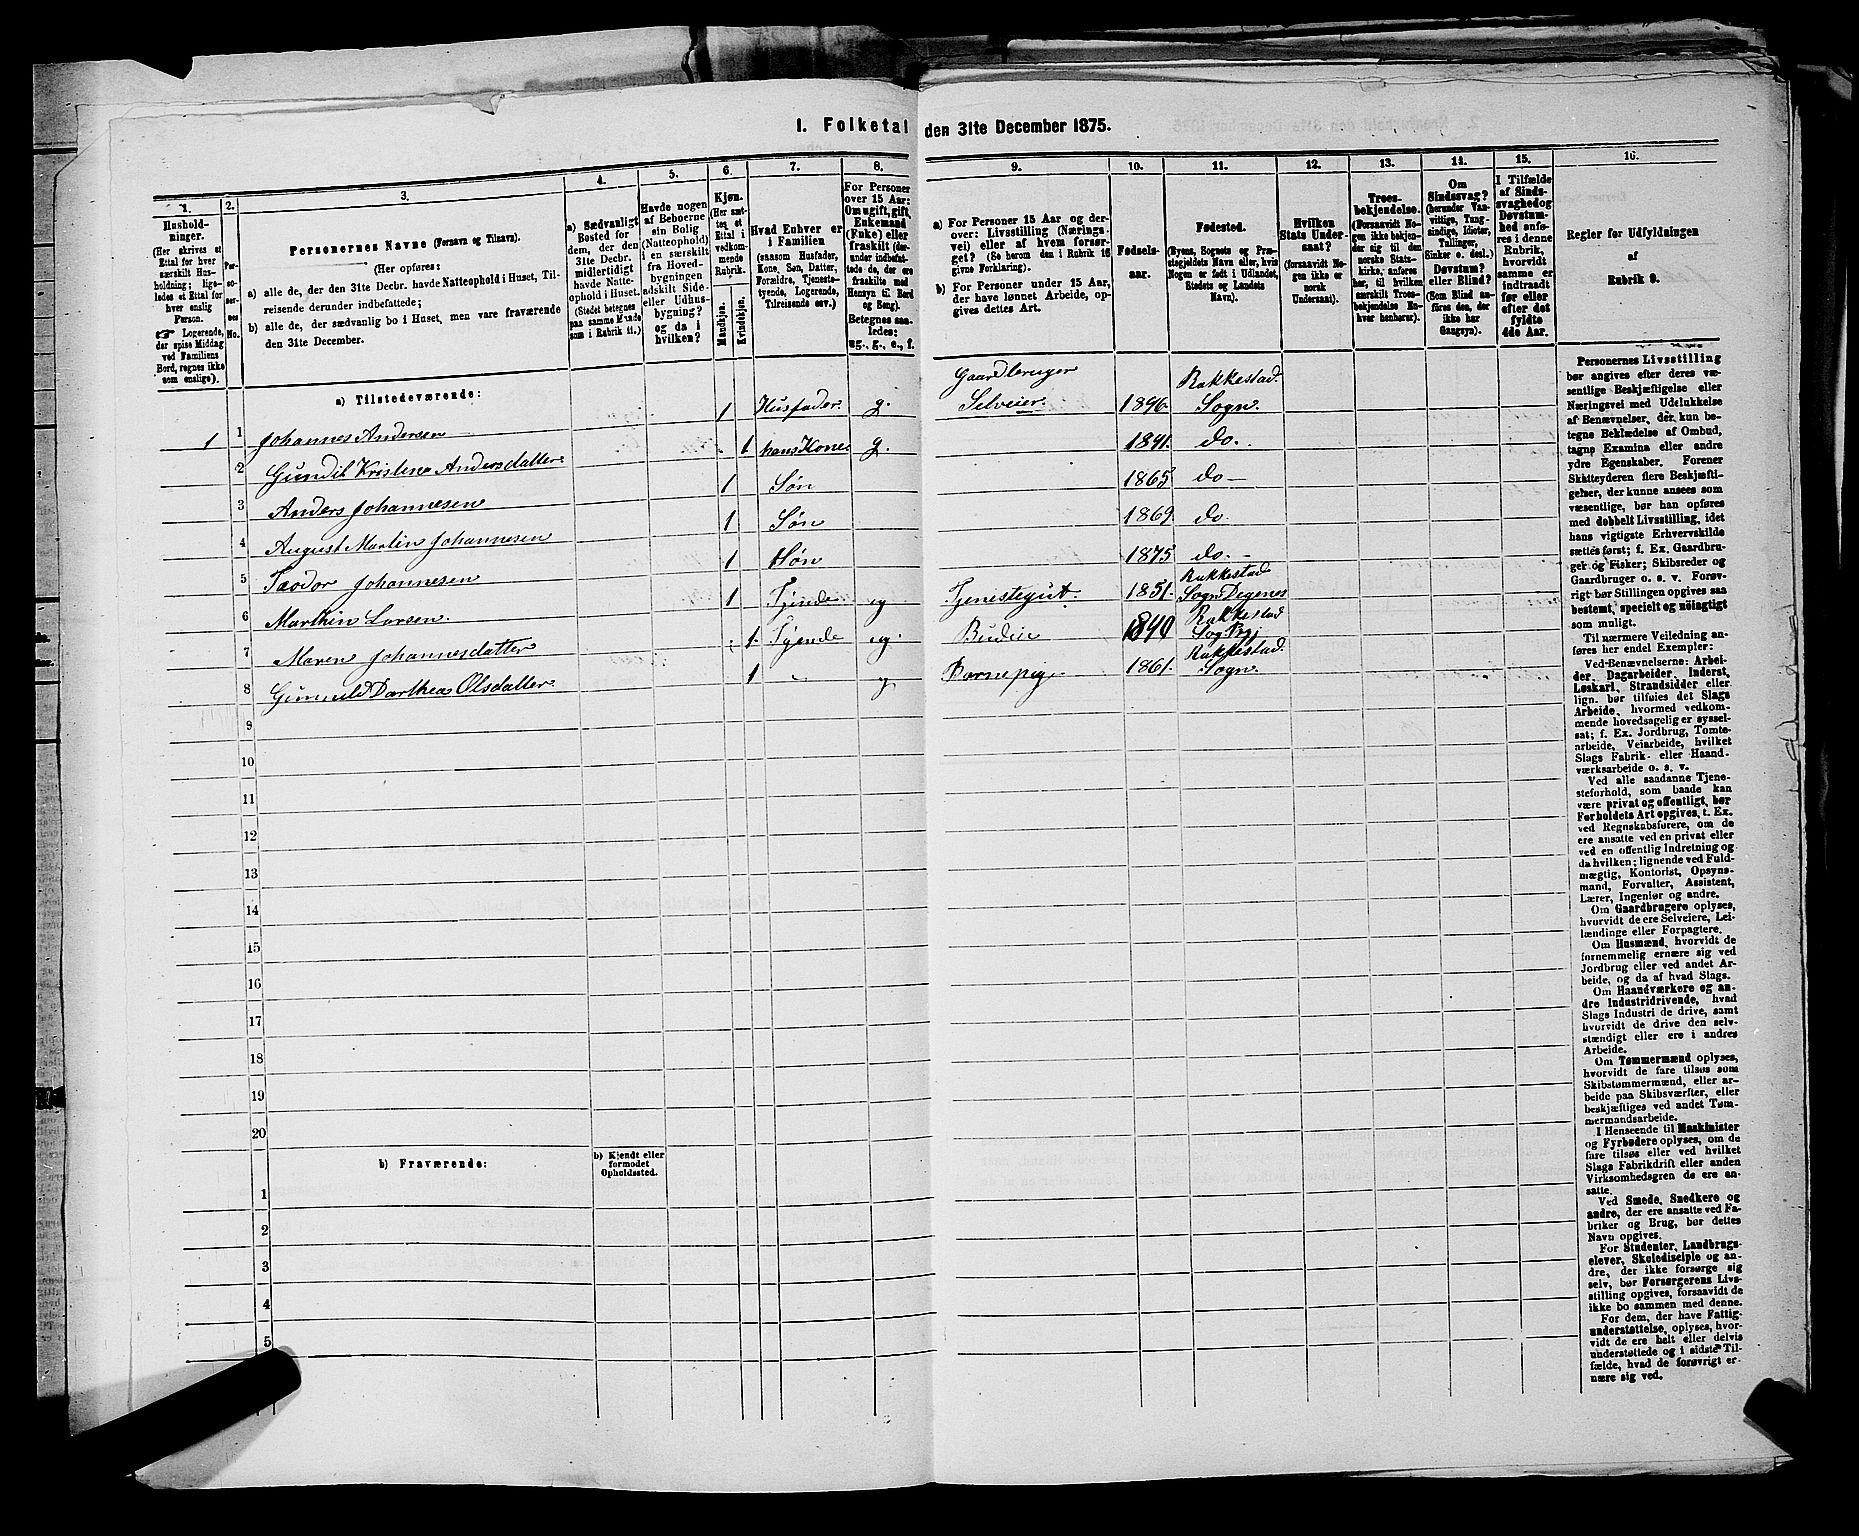 1. Folketal den 31te December 1875.
1.
2.
3.
4.
5.
6.
7.
8.
9.
10.
11.
12.
13.
14.
15.
16.
Husholdninger.
(Her skrives et Ettal for hver særskilt Husholdning; ligeledes et Ettal for hver enslig Person.
☞ Logerende, der spise Middag ved Familiens Bord, regnes ikke som enslige).
Personernes No.
Personernes Navne (Fornavn og Tilnavn).
(Her opføres:
a) alle de, der den 31te Decbr. havde Natteophold i Huset, Tilreisende derunder indbefattede;
b) alle de, der sædvanlig bo i Huset, men vare fraværende den 31te December.
a) Sædvanligt Bosted for dem, der den 31te Decbr. midlertidigt havde Natteophold i Huset. (Stedet betegnes paa samme Maade som i Rubrik 11.)
Havde nogen af Beboerne sin Bolig (Natteophold) i en særskilt fra Hovedbygningen adskilt Side- eller Udhusbygning? og da i hvilken?
Kjøn. (Her sættes et Ettal i vedkommende Rubrik.
Mandkjøn.
Kvindekjøn.
Hvad Enhver er i Familien (saasom Husfader, Kone, Søn, Datter, Forældre, Tjenestetyende, Logerende, Tilreisende osv.)
For Personer over 15 Aar: Om ugift, gift, Enkemand (Enke) eller fraskilt (derunder indbefattede de, der ere fraskilte med Hensyn til Bord og Seng). Betegnes saaledes: ug., g., e., f.
a) For Personer 15 Aar og derover: Livsstilling (Næringsvei) eller af hvem forsørget? (Se herom den i Rubrik 16 givne Forklaring).
b) For Personer under 15 Aar, der have lønnet Arbeide, opgives dettes Art.
Fødselsaar.
Fødested. (Byens, Sognets og Præstegjeldets Navn eller, hvis Nogen er født i Udlandet, Stedets og Landets Navn).
Hvilken Stats Undersaat? (forsaavidt Nogen ikke er norsk Undersaat).
Troesbekjendelse. (Forsaavidt Nogen ikke bekjender sig til den norske Statskirke, anføres her, til hvilken særskilt Troesbekjendelse Enhver henhører).
Om Sindssvag? (herunder Vanvittige, Tungsindige, Idioter, Tullinger, Sinker o. desl.) Døvstum? eller Blind? (Som Blind anføres den, der ikke har Gangsyn).
I Tilfælde af Sindssvaghed og Døvstumhed anføres i denne Rubrik, hvorvidt samme er indtraadt før eller efter det fyldte 4de Aar.
Regler for Udfyldningen af Rubrik 9.
a) Tilstedeværende:
1 1 Johannes Andersen 1 Husfader g. Gaardbruger Selveier. 1896 Rakkestad Sogn.
2 Gundil Kristine Andersdatter 1 hans Kone g. 1841. do.
3 Anders Johannesen 1 Søn 1865 do —
4 August Martin Johannesen 1 Søn 1869. do.
5 Teodor Johannesen 1 Søn 1875 do. —
6 Marthin Larsen. 1 Tjende ug Tjenestegut. 1851. Rakkestad Sogn Degenes
7 Maren Johannesdatter 1. Tjende ug. Budeie 1840 Rakkestad Sogn
8 Gunnild Darthea Olsdatter. 1 " ug Barnepig 1861. Rakkestad Sogn.
9
10
11
12
13
14
15
16
17
18
19
20
b) Fraværende:
b) Kjendt eller formodet Opholdssted.
1
2
3
4
5
Personernes Livsstilling
bør angives efter deres væsentlige Beskjæftigelse eller
Næringsvei med Udelukkelse
af Benævnelser, der kun betegne Beklædelse af Ombud,
tagne Examina eller andre
ydre Egenskaber. Forener
Skatteyderen flere Beskjæftigelser, der kunne ansees som
væsentlige, bør han opføres
med dobbelt Livsstilling, idet
hans vigtigste Erhvervskilde
sættes først; f. Ex. Gaardbruger og Fisker; Skibsreder og
Gaardbruger o. s. v. Forøvrigt bør Stillingen opgives saa
bestemt, specielt og nöiagtigt
som muligt.
Til nærmere Veiledning anføres her endel Exempler:
Ved Benævnelserne: Arbeider, Dagarbeider, Inderst,
Løskarl, Strandsidder eller
lign. bør tilføies det Slags
Arbeide, hvormed vedkommende hovedsagelig er sysselsat; f. Ex. Jordbrug, Tomtearbeide, Veiarbeide, hvilket
Slags Fabrik- eller Haandværksarbeide o. s. v.
Ved alle saadanne Tjenesteforhold, som baade kan
være privat og offentligt, bør
Forholdets Art opgives, t. Ex.
ved Regnskabsførere, om de
ere ansatte ved en privat eller
ved en offentlig Indretning og
da hvilken; lignende ved Fuldmægtig, Kontorist, Opsynsmand, Forvalter, Assistent,
Lærer, Ingeniør og andre.
Om Gaardbrugere oplyses,
hvorvidt de ere Selveiere, Leilændinge eller Forpagtere.
Om Husmænd, hvorvidt de
fornemmelig ernære sig ved
Jordbrug eller ved andet Arbeide, og da af hvad Slags.
Om Haandværkere og andre Industridrivende, hvad
Slags Industri de drive, samt
hvorvidt de drive den selvstændigt eller ere i andres
Arbeide.
Om Tømmermænd oplyses,
hvorvidt de fare tilsøs som
Skibstømmermænd, eller arbeide paa Skibsværfter, eller
beskjæftiges ved andet Tømmermandsarbeide.
I Henseende til Maskinister
og Fyrbødere oplyses, om de
fare tilsøs eller ved hvilket
Slags Fabrikdrift eller anden
Virksomhedsgren de ere ansatte.
Ved Smede, Snedkere og
andre, der ere ansatte ved Fabriker og Brug, bør dettes
Navn opgives.
For Studenter, Landbrugselever, Skoledisciple og andre, der ikke forsørge sig
selv, bør Forsørgerens Livsstilling opgives, forsaavidt de
ikke bo sammen med denne.
For dem, der have Fattigunderstøttelse, oplyses, hvorvidt de ere helt eller delvis
understøttede og i sidste Tilfælde, hvad de forøvrigt ernære sig ved.